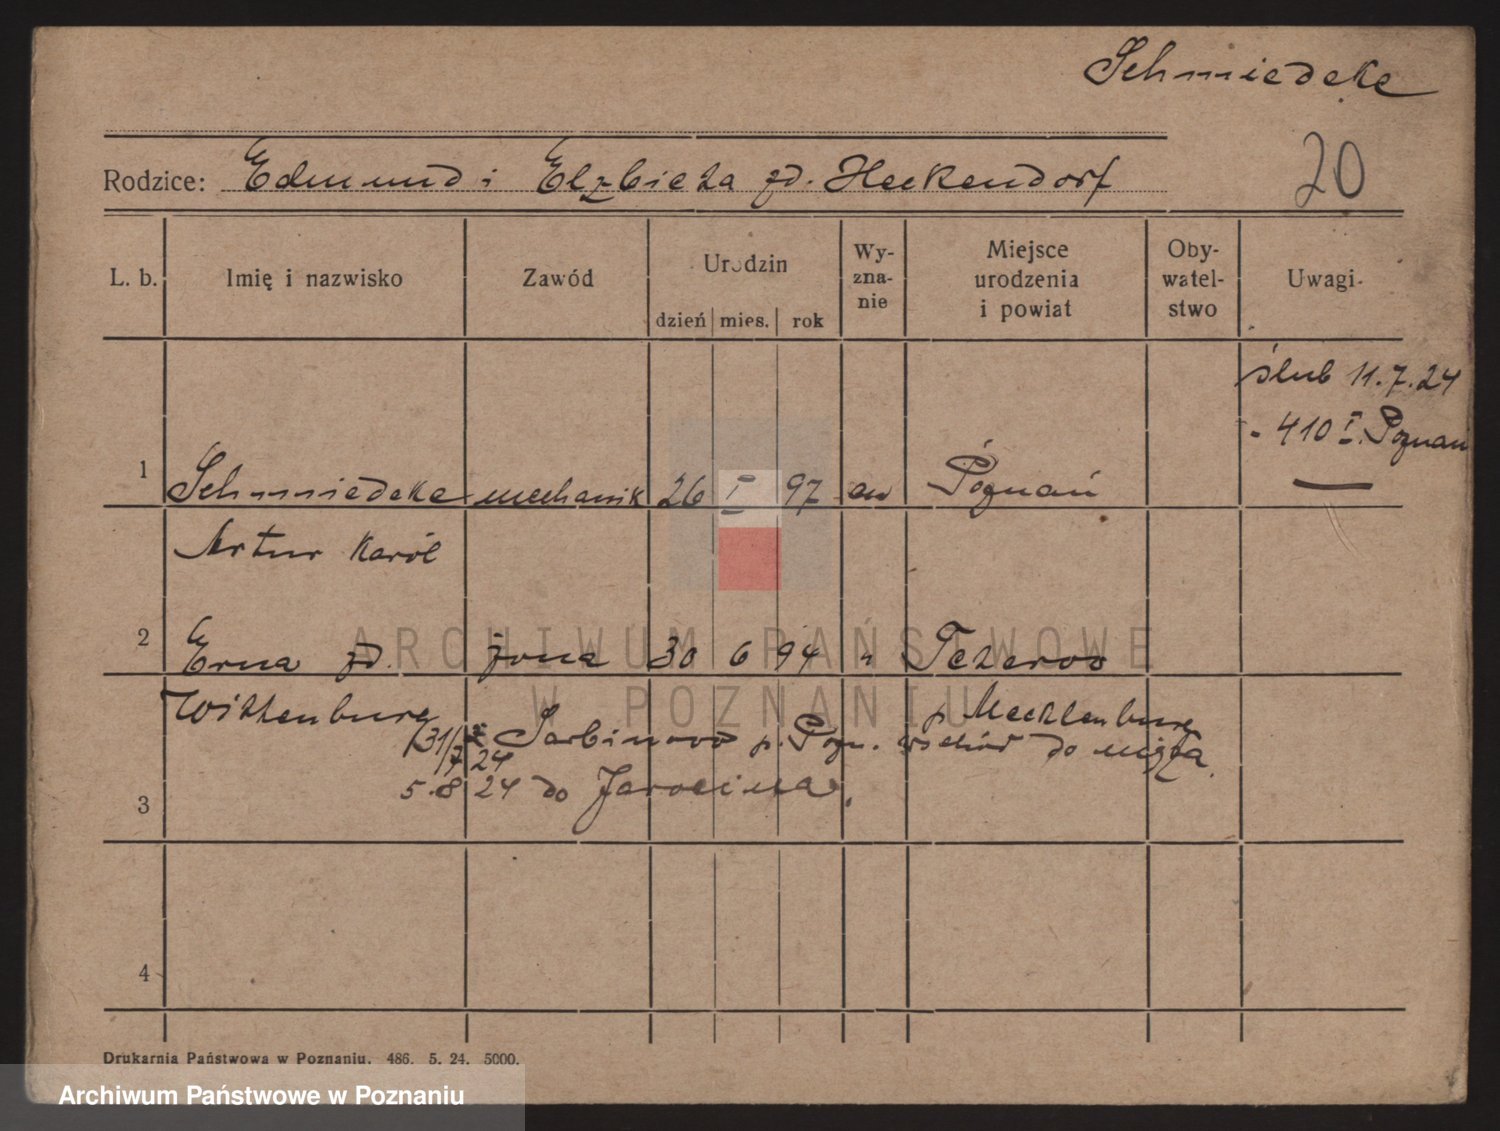 Schmiedeke
20
Rodzice: Edmund i Elzbieta zd. Heckendorf
L. b. Imię i nazwisko Zawód Urodzin dzień mies. rok Wy-zna-nie Miejsce urodzenia i powiat Oby-watel-stwo Uwagi
ślub 11.7.24
410 I. Poznań
1 Schmiedeke mechanik 26 I 97 ew Poznań
Artur Karol
2 Erna zd. żona 30 6 94 " Teterow
Wittenburg p. Mecklenburg
31/7 24 z Sarbinowo p. Pozn. wschód do męża
5.8 24 do Jarocina.
3
4
Drukarnia Państwowa w Poznaniu. 486. 5. 24. 5000.
ARCHIWUM PAŃSTWOWE
W POZNANIU
Archiwum Państwowe w Poznaniu